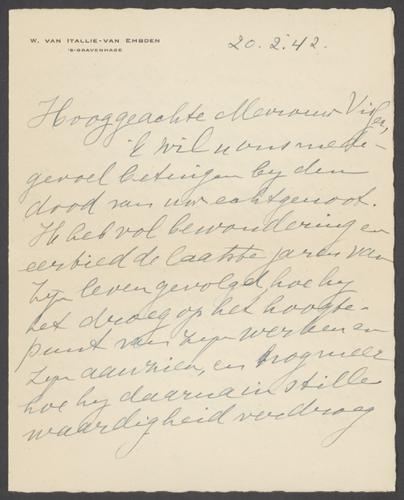 W. VAN ITALLIE-VAN EMBDEN
'S-GRAVENHAGE
20.2.42.
Hooggeachte Mevrouw Visser,
Ik wil u ons mede-
gevoel betuigen bij den
dood van uw echtgenoot.
Ik heb vol bewondering en
eerbied de laatste jaren van
zijn leven gevolgd, hoe hij
het droeg op het hoogte-
punt van zijn werken en
zijn aanzien, en nog meer
hoe hij daarna in stille
waardigheid verdroeg